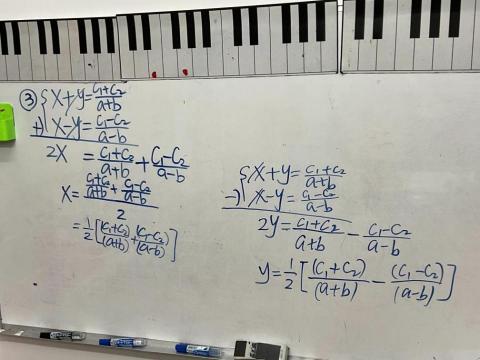 ③ { x+y = (c₁+c₂)/(a+b)
+) x-y = (c₁-c₂)/(a-b)
2x = (c₁+c₂)/(a+b) + (c₁-c₂)/(a-b)
x = ((c₁+c₂)/(a+b) + (c₁-c₂)/(a-b))/2
= 1/2 [(c₁+c₂)/(a+b) + (c₁-c₂)/(a-b)]
{ x+y = (c₁+c₂)/(a+b)
-) x-y = (c₁-c₂)/(a-b)
2y = (c₁+c₂)/(a+b) - (c₁-c₂)/(a-b)
y = 1/2 [(c₁+c₂)/(a+b) - (c₁-c₂)/(a-b)]